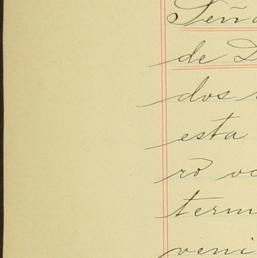 Seño
de D
dos
esta
ro vo
term
veni